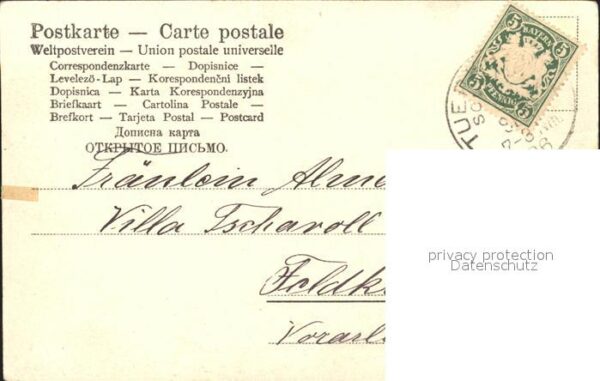 Postkarte — Carte postale
Weltpostverein — Union postale universelle
Correspondenzkarte — Dopisnice —
Levelező-Lap — Korespondenční listek
Dopisnica — Karta Korespondenzyjna
Briefkaart — Cartolina Postale —
Brefkort — Tarjeta Postal — Postcard
Дописна карта
ОТКРЫТОЕ ПИСЬМО.
5 BAYERN 5
5 PFENNIG 5
Fräulein Alm
Villa Tschavoll
Feldk
Vorarl
privacy protection
Datenschutz